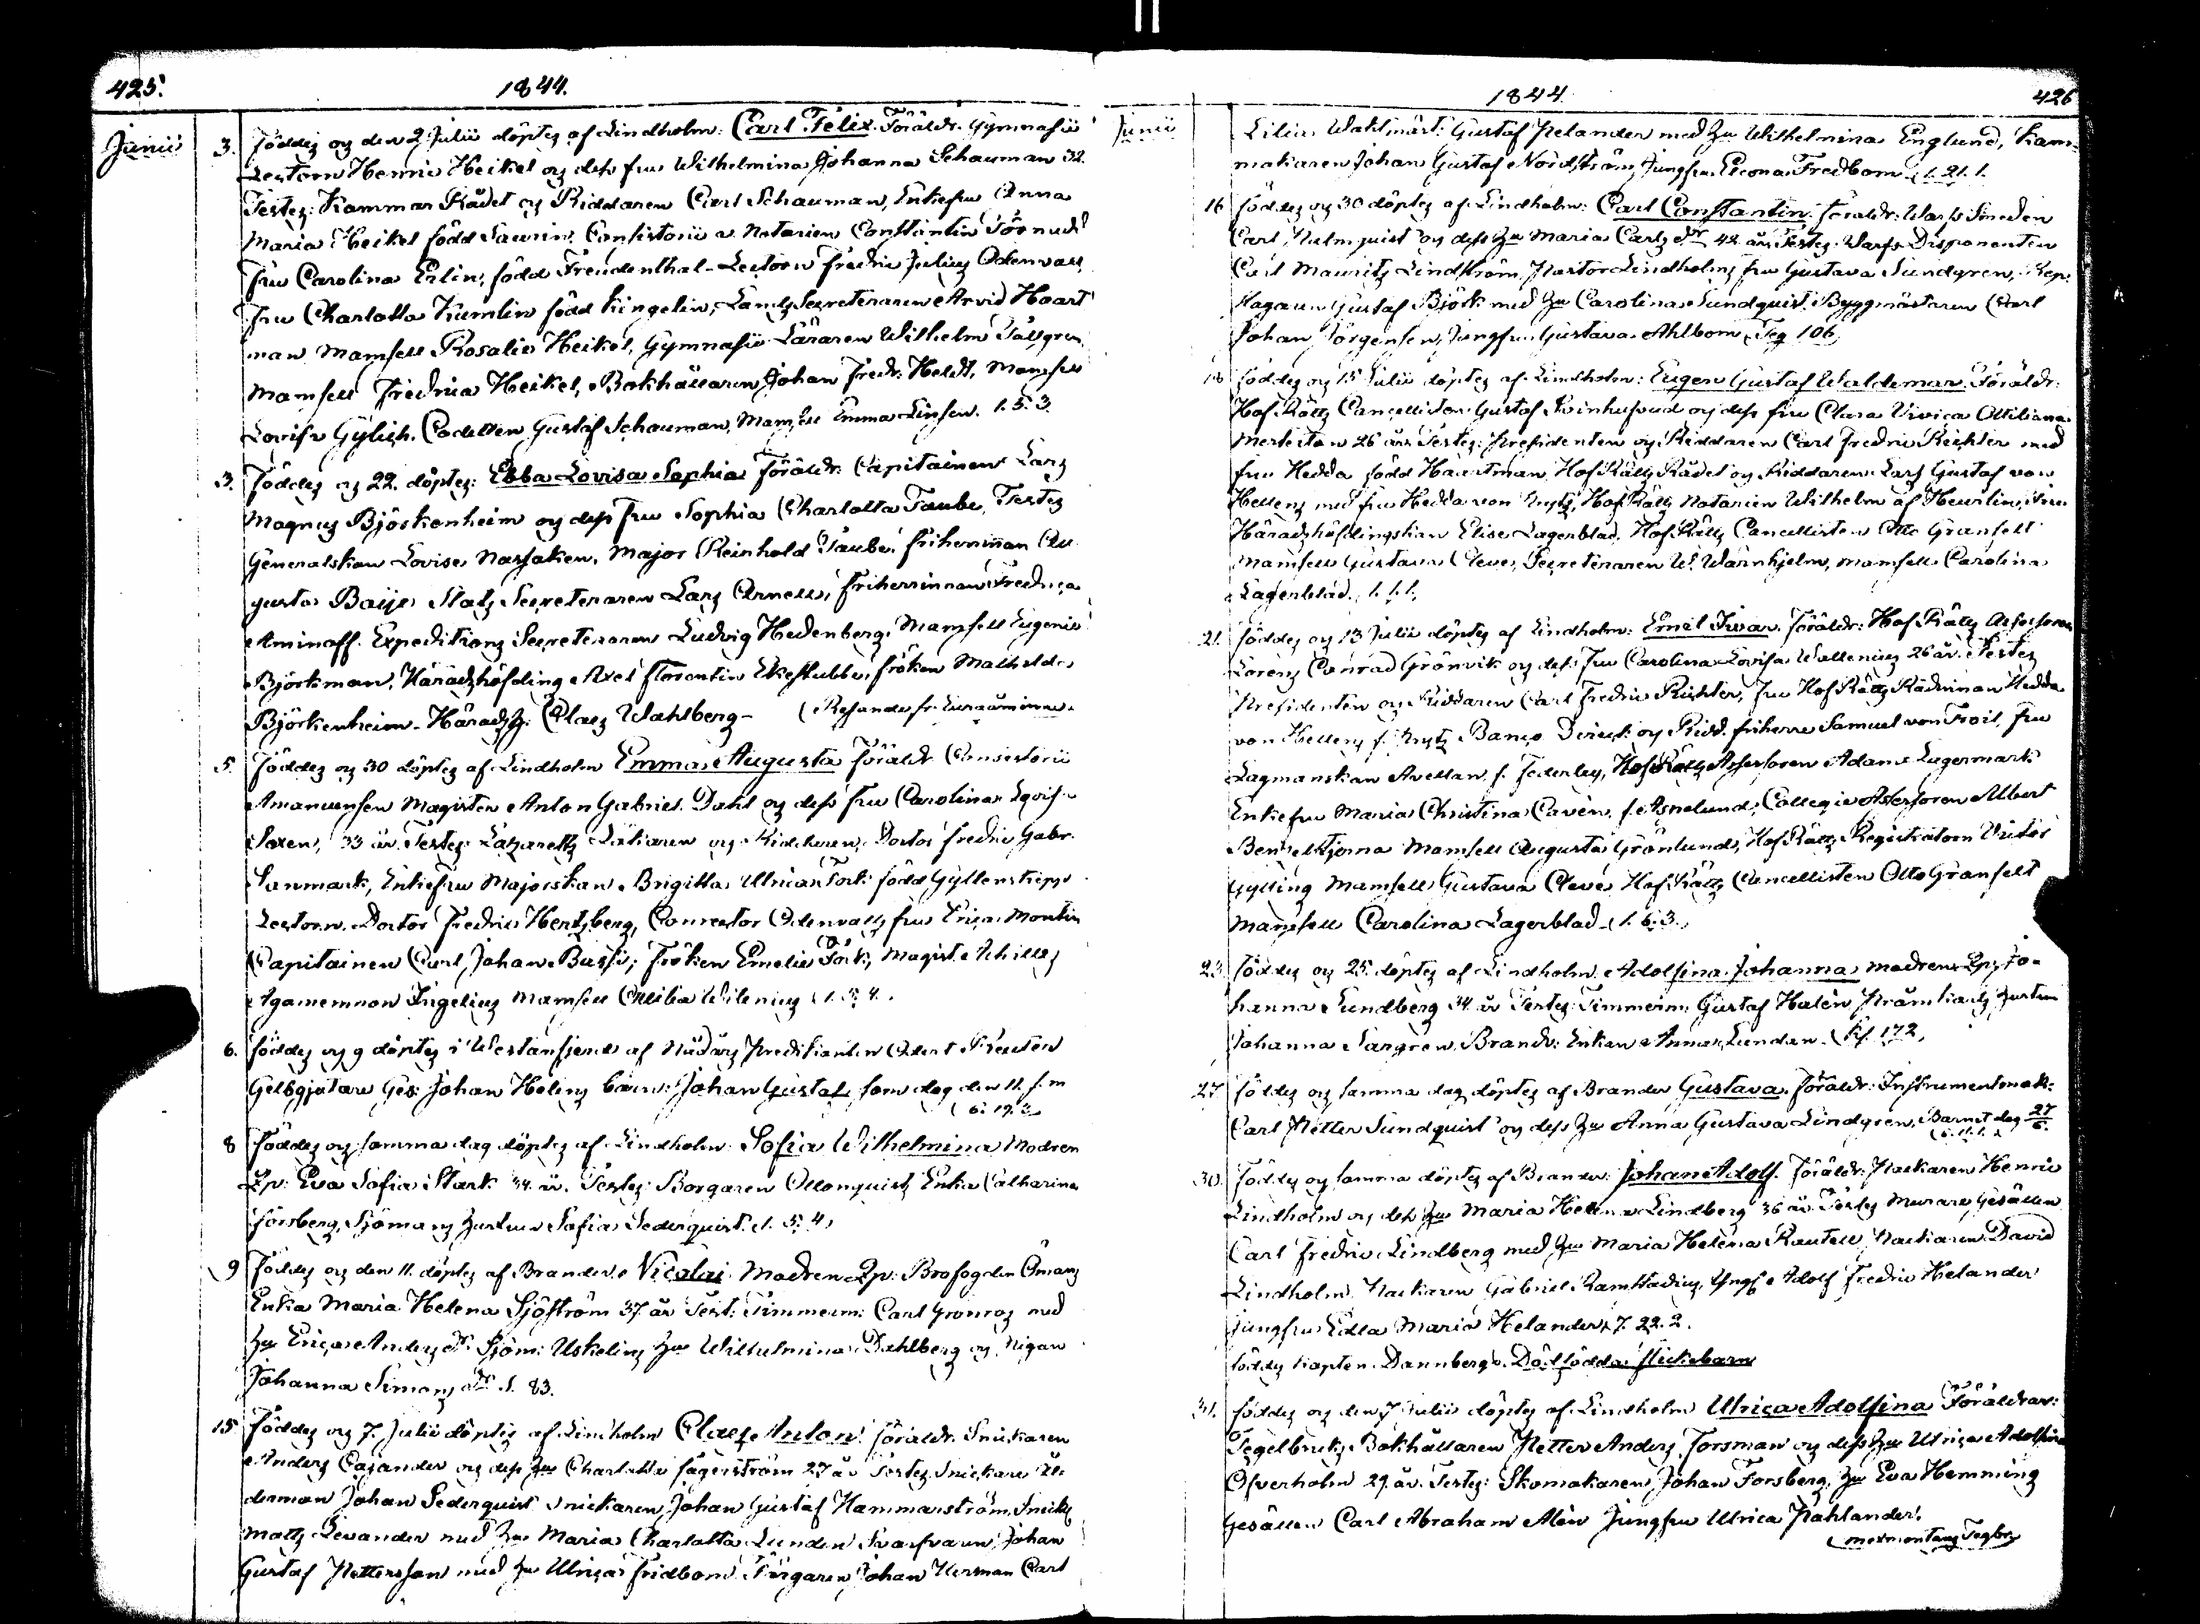 425. 1844.
Junii 3. Föddes og den 2 Julii döptes af Lindholm: Carl Felix. Föräldr. Gymnasii
Lectorn Henric Heikel og dess fru Wilhelmina Johanna Schauman 32.
Testes: Kammar Rådet og Riddaren Carl Schauman, Enkefru Anna
Maria Heikel född Saurin. Consistorii v. Notarien Constantin Törnudd
fru Carolina Erlin, född Freudenthal - Lectorn Fredric Julius Odenvall,
fru Charlotta Kumlin född Kingelin, Lands Secreteraren Arvid Haart
man Mamsell Rosalie Heikel, Gymnasii Läraren Wilhelm Tallgren
Mamsell Fredrica Heikel, Bokhållaren Johan Fredr. Heldt, Mamsell
Lovisa Gylich. Cadetten Gustaf Schauman, Mamsell Emma Linsen. 1. 5. 3.
3. Föddes og 22. döptes: Ebba Lovisa Sophia Föräldr: Capitainen Lars
Magnus Björkenheim og dess fru Sophia Charlotta Taube, Testes
Generalskan Lovise Nassaken, Major Reinhold Taube, friherrinnan Au
gusta Boije Stats Secreteraren Lars Arnell, Friherrinnan Fredrica
Aminoff. Expeditions Secreteraren Ludvig Hedenberg, Mamsell Eugenie
Björkman, Häradshöfding Axel Florentin Ekestubbe, fröken Mathilda
Björkenheim - Häradsh. Claes Wahlberg -
5. Föddes og 30 döptes af Lindholm Emma Augusta Föräldr Consistorii
Amanuensen Magister Anton Gabriel Dahl og dess fru Carolina Lovisa
Saxen, 33 år. Testes: Lazaretts Läkaren og Riddaren, Doctor Fredric Gabr.
Sanmark, Enkefru Majorskan Brigitta Ulrica Tork född Gyllenskepp
Lectorn Doctor Fredric Hertzberg, Conrector Odenvall, fru Erica Montin
Capitainen Carl Johan Busse, Fröken Emelie Tork, Magist. Achilles
Agamemnon Ingelius Mamsell Ottilia Wilenius 1. 5. 4.
6. föddes og 9 döptes i Westanfjerd af Nådårs Predikanten
Gelbgjutare Ges: Johan Helins barn: Johan Gustaf som dog den 11. s. m
6. 19. 3.
8 Föddes og samma dag döptes af Lindholm Sofia Wilhelmina Modren
Lp: Eva Sofia Stark 34 år. Testes: Borgaren Ollonquists Enka Catharina
Forsberg, Sjömans hustru Sofia Sederquist. 1. 5. 4.
9 Föddes og den 11. döptes af Brander Nicolai. Modren Lp: Brofogden Ömans
Enka Maria Helena Sjöström 37 år Test: Timmerm: Carl Gronroos med
hu Erica Anders dr Sjöm: Uskelins hu Wilhelmina Dahlberg og Pigan
Johanna Simons dr 1. 83.
15 Föddes og 7. Julii döptes af Lindholm Claes Anton. Föräldr. Snickaren
Anders Cajander og dess hu Charlotta Fagerström 27 år Testes: Snickare Ål
derman Johan Sederquist snickaren Johan Gustaf Hammarström, Snick
Matts Levander med hu Maria Charlotta Lunden Svarfvaren Johan
Gustaf Pettersson med hu Ulrica Fridbom. Färgaren Johan Herman Carl
1844 426
Junii Lilius Waktmäst: Gustaf Helander med hu Wilhelmina Englund, Kam
makaren Johan Gustaf Nordström, Jungfru Leona Fredbom 1. 21. 1.
16 föddes og 30 döptes af Lindholm: Carl Constantin. föräldr: Warfs Smeden
Carl Malmquist og dess hu Maria Carls dr 42 år. Testes: Warfs Disponenten
Carl Mauritz Lindström, Pastor Lindholms fru Gustava Sundgren, Rep-
slagaren Gustaf Björk med hu Carolina Sundquist. Byggmästaren Carl
Johan Jörgensen, Jungfru Gustava Ahlbom. Teg 106
18 föddes og 15 Julii döptes af Lindholm: Eugen Gustaf Waldemar. Föräldr:
Hof Rätts Cancellisten Gustaf Svinhufvud og dess fru Clara Vivica Ottiliana
Merleiton 26 år. Testes: Presidenten og Riddaren Carl Fredric Richter med
fru Hedda född Haartman Hof Rätts Rådet og Riddaren Lars Gustaf von
Hellens med fru Hedda von Knytz, Hof Rätts Notarien Wilhelm af Heurlin, fru
Häradshöfdingskan Elise Lagerblad, Hof Rätts Cancellisten Otto Granfelt
Mamsell Gustava Cleve, Secreteraren W. Wärnhjelm, Mamsell Carolina
Lagerblad. 1. 1. 1.
21. föddes og 13 Julii döptes af Lindholm: Emil Ivar. Föräldr: Hof Rätts Assessoren
Lorens Conrad Grönvik og dess fru Carolina Lovisa Wallenius 26 år. Testes
Presidenten og Riddaren Carl Fredric Richter, fru Hof Rätts Rådinnan Hedda
von Hellens f. Knytz Banco Direct. og Ridd. friherre Samuel von Troil, fru
Lagmanskan Avellan f. Federley, Hof Rätts Assessoren Adam Lagermark
Enkefru Maria Christina Caven, f. Asnelund, Collegie Assessoren Albert
Bensellstjerna Mamsell Augusta Grönlund, Hof Rätts Registratorn Victor
Gylling Mamsell Gustava Cleve Hof Rätts Cancellisten Otto Granfelt
Mamsell Carolina Lagerblad 1. 6. 3.
23. föddes og 25. döptes af Lindholm Adolfina Johanna modren Lp: Jo-
hanna Lundberg 34 år Testes: Timmerm: Gustaf Halén hustru
Johanna Sargren, Brandv: Enkan Anna Lundan. Kf. 172.
27 föddes og samma dag döptes af Brander Gustava. föräldr: Instrumentmak:
Carl Petter Sundquist og dess hu Anna Gustava Lindgren. Barnet dog 27/6.
6. 11. 1.
30. Föddes og samma döptes af Brander: Johan Adolf. föräldr: Packaren Henric
Lindholm og dess hu Maria Helena Lindberg 36 år. Testes Murare Gesällen
Carl Fredric Lindberg med hu Maria Helena Rautell Packaren David
Lindholm. Packaren Gabriel Ramstadius, Yngl: Adolf Fredric Helander
jungfru Edla Maria Helander 7. 22. 2.
föddes Kapten Dannbergs Dödfödda flickebarn
31. föddes og den 7 Julii döptes af Lindholm Ulrica Adolfina Föräldrar:
Tegelbruks Bokhållaren Petter Anders Forsman og dess hu Ulrica Adolfina
Öfverholm 29. år. Testes: Skomakaren Johan Forsberg, hu Eva Hemming
Gesällen Carl Abraham Alén Jungfru Ulrica Påhlander.
Mexmontans Tegbr